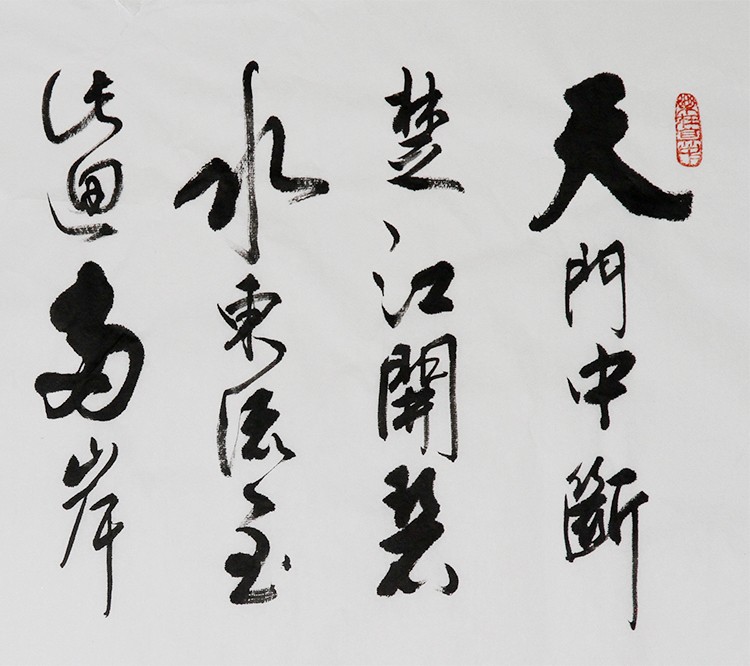 天門中斷
楚江開碧
水東流至
此迴兩岸